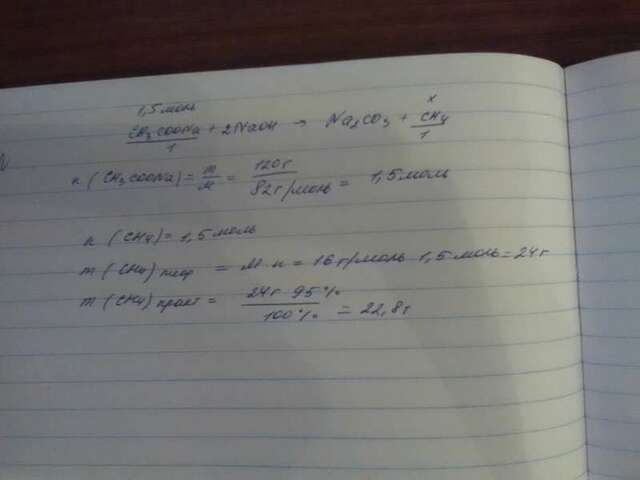 1,5 моль x
CH₃COONa + 2NaOH → Na₂CO₃ + CH₄
1 1
n (CH₃COONa) = m/M = 120 г / 82 г/моль = 1,5 моль
n (CH₄) = 1,5 моль
m (CH₄) теор = M · n = 16 г/моль · 1,5 моль = 24 г
m (CH₄) практ = 24 г · 95 % / 100 % = 22,8 г